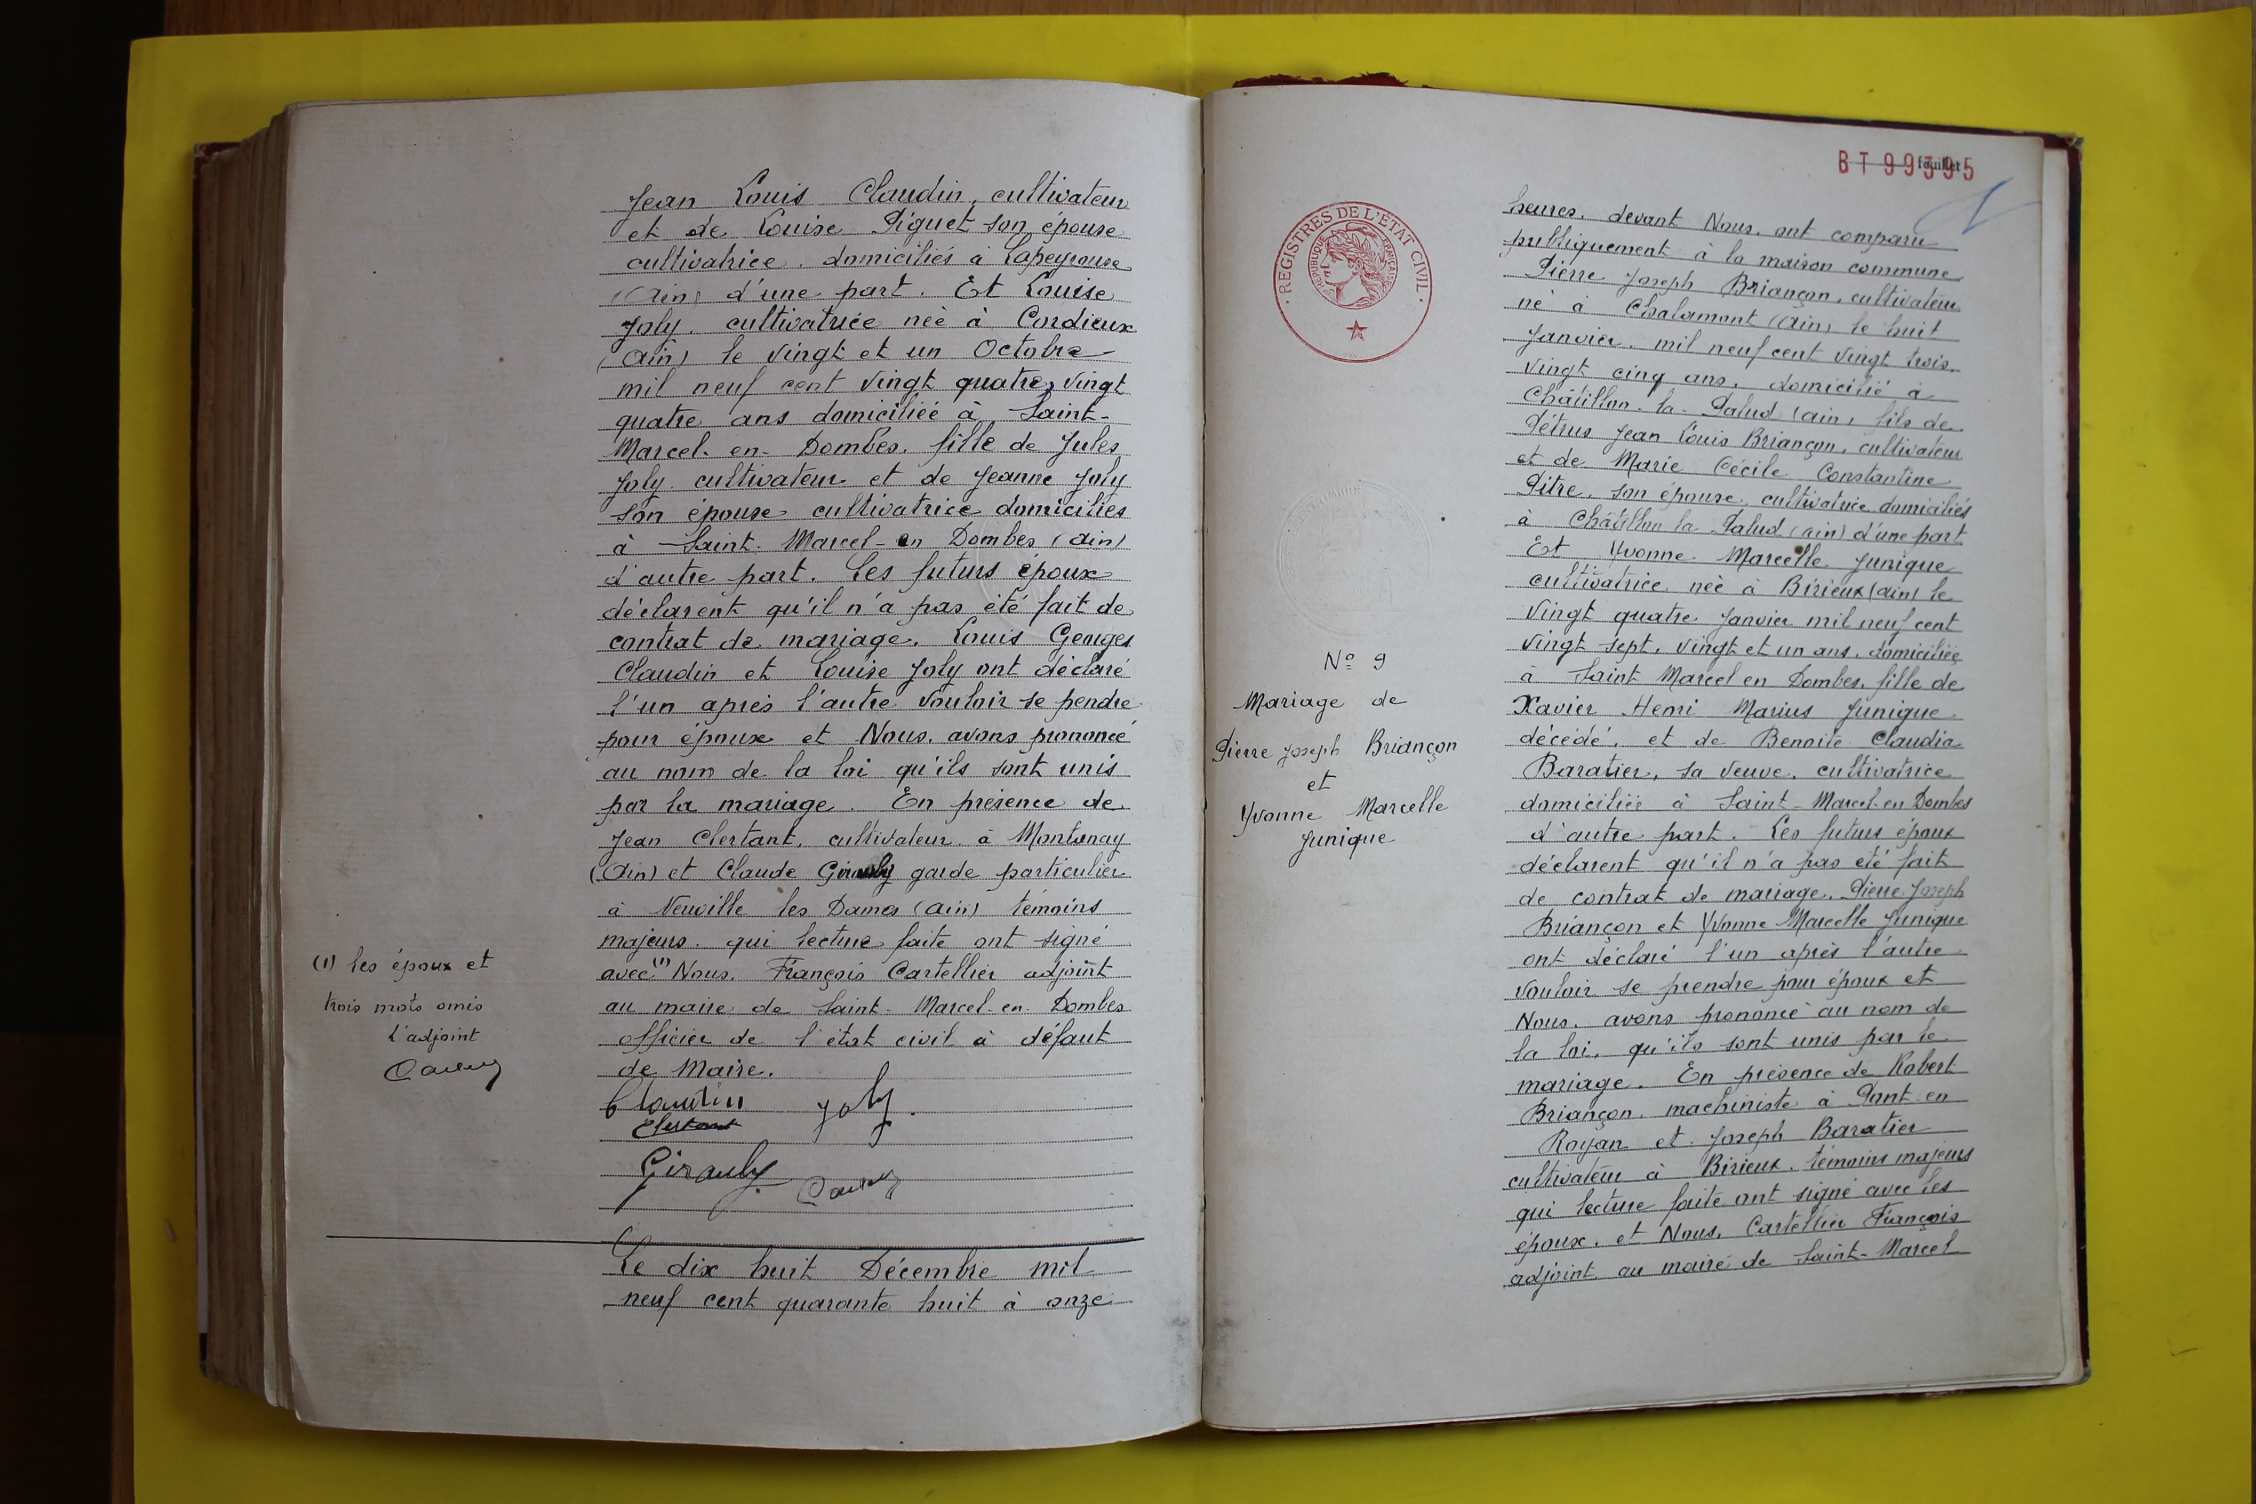 Jean Louis Claudin, cultivateur
et de Louise Piguet son épouse
cultivatrice. domiciliés à Lapeyrouse
(Ain) d'une part. Et Louise
Joly. cultivatrice née à Cordieux
(Ain) le vingt et un Octobre
mil neuf cent vingt quatre, vingt
quatre ans domiciliée à Saint-
Marcel-en-Dombes. fille de Jules
Joly. cultivateur et de Jeanne Joly
son épouse cultivatrice domiciliés
à Saint-Marcel-en Dombes (Ain)
d'autre part. Les futurs époux
déclarent qu'il n'a pas été fait de
contrat de mariage. Louis Georges
Claudin et Louise Joly ont déclaré
l'un après l'autre vouloir se pendre
pour époux et Nous. avons prononcé
au nom de la loi qu'ils sont unis
par la mariage. En présence de
Jean Clertant, cultivateur à Montanay
(Ain) et Claude Girauly garde particulier
à Neuville les Dames (Ain) témoins
majeurs. qui lecture faite ont signé
avec (1) Nous. François Cartellier adjoint
au maire de Saint-Marcel-en-Dombes
officier de l'état civil à défaut
de Maire.
(1) les époux et
trois mots omis
L'adjoint
Claudin Joly.
Clertant
Girauly
Le dix huit Décembre mil
neuf cent quarante huit à onze
BT 99395
feuillet
REGISTRES DE L'ÉTAT CIVIL
RÉPUBLIQUE FRANÇAISE
N° 9
Mariage de
Pierre Joseph Briançon
et
Yvonne Marcelle
Junique
heures. devant Nous. ont comparu
publiquement à la maison commune
Pierre Joseph Briançon, cultivateur
né à Chalamont (Ain) le huit
Janvier. mil neuf cent vingt trois.
vingt cinq ans. domicilié à
Châtillon-la-Palud (Ain) fils de
Pétrus Jean Louis Briançon, cultivateur
et de Marie Cécile Constantine
Pitre. son épouse. cultivatrice domiciliés
à Châtillon la Palud (Ain) d'une part
Et Yvonne Marcelle Junique
cultivatrice née à Birieux (Ain) le
vingt quatre Janvier mil neuf cent
vingt sept. vingt et un ans. domiciliée
à Saint Marcel en Dombes. fille de
Xavier Henri Marius Junique.
décédé. et de Benoite Claudia
Baratier, sa veuve. cultivatrice
domiciliée à Saint-Marcel-en Dombes
d'autre part. Les futurs époux
déclarent qu'il n'a pas été fait
de contrat de mariage. Pierre Joseph
Briançon et Yvonne Marcelle Junique
ont déclaré l'un après l'autre
vouloir se prendre pour époux et
Nous. avons prononcé au nom de
la loi. qu'ils sont unis par le
mariage. En présence de Robert
Briançon. machiniste à Pont en
Royan et Joseph Baratier
cultivateur à Birieux. témoins majeurs
qui lecture faite ont signé avec les
époux. et Nous. Cartellier François
adjoint au maire de Saint-Marcel